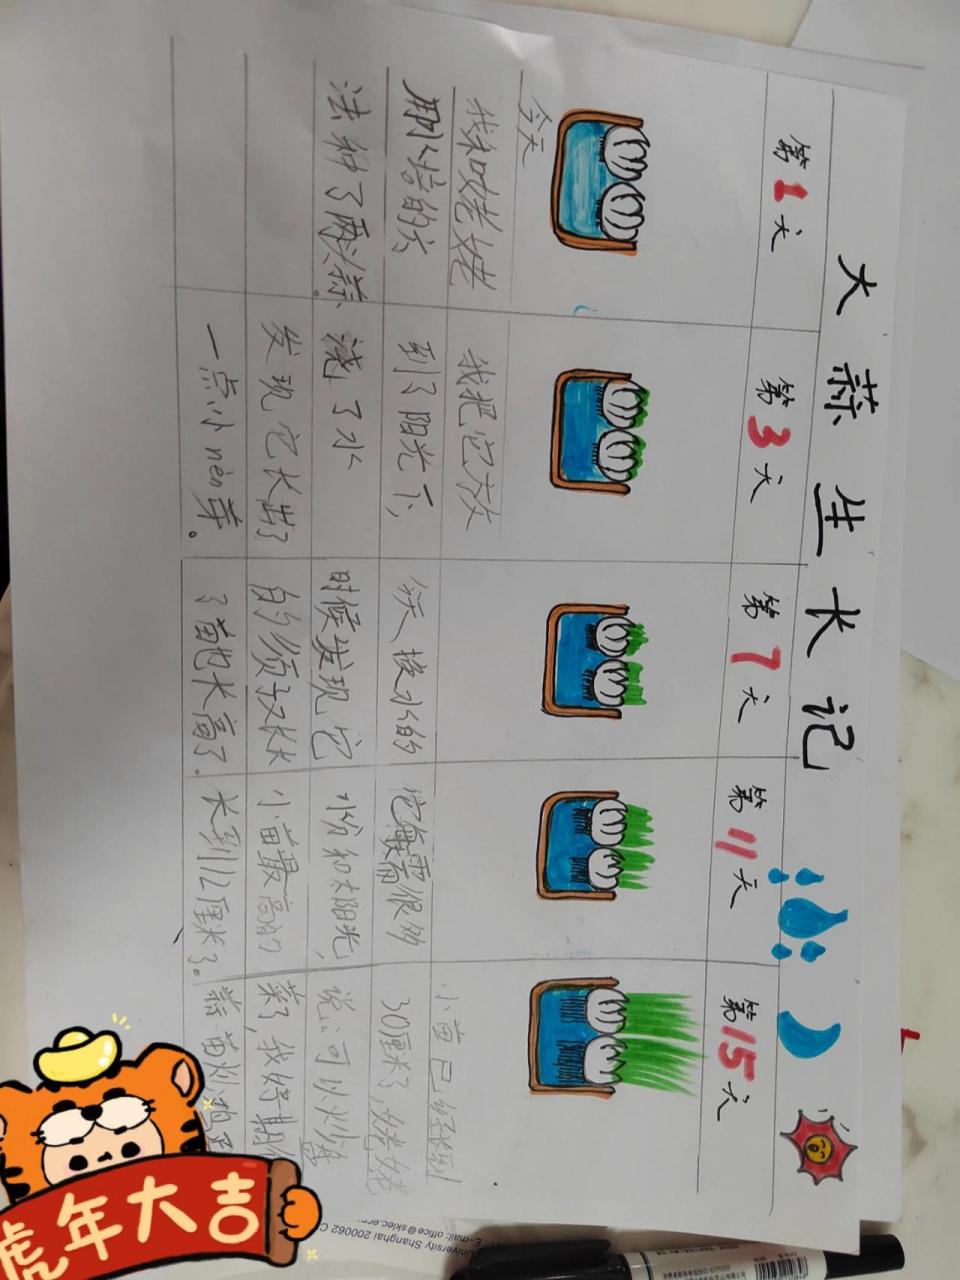 大蒜生长记
第1天
今天
我和姥姥
用
的六
法种了两头蒜。
第3天
我把它放
到了阳光下,
浇了水
发现它长出了
一点小nèn芽。
第7天
今天换水的
时候发现它
的须子又长长
了苗也长高了。
第11天
它每需很多
水份和太阳光,
小苗最高的
长到12厘米了。
第15天
小苗已经长到
30厘米了,姥姥
说:可以炒盘
菜了,我好期
蒜苗炒鸡
虎年大吉
University Shanghai 200062 C
E-mail: office@sklec.ecn